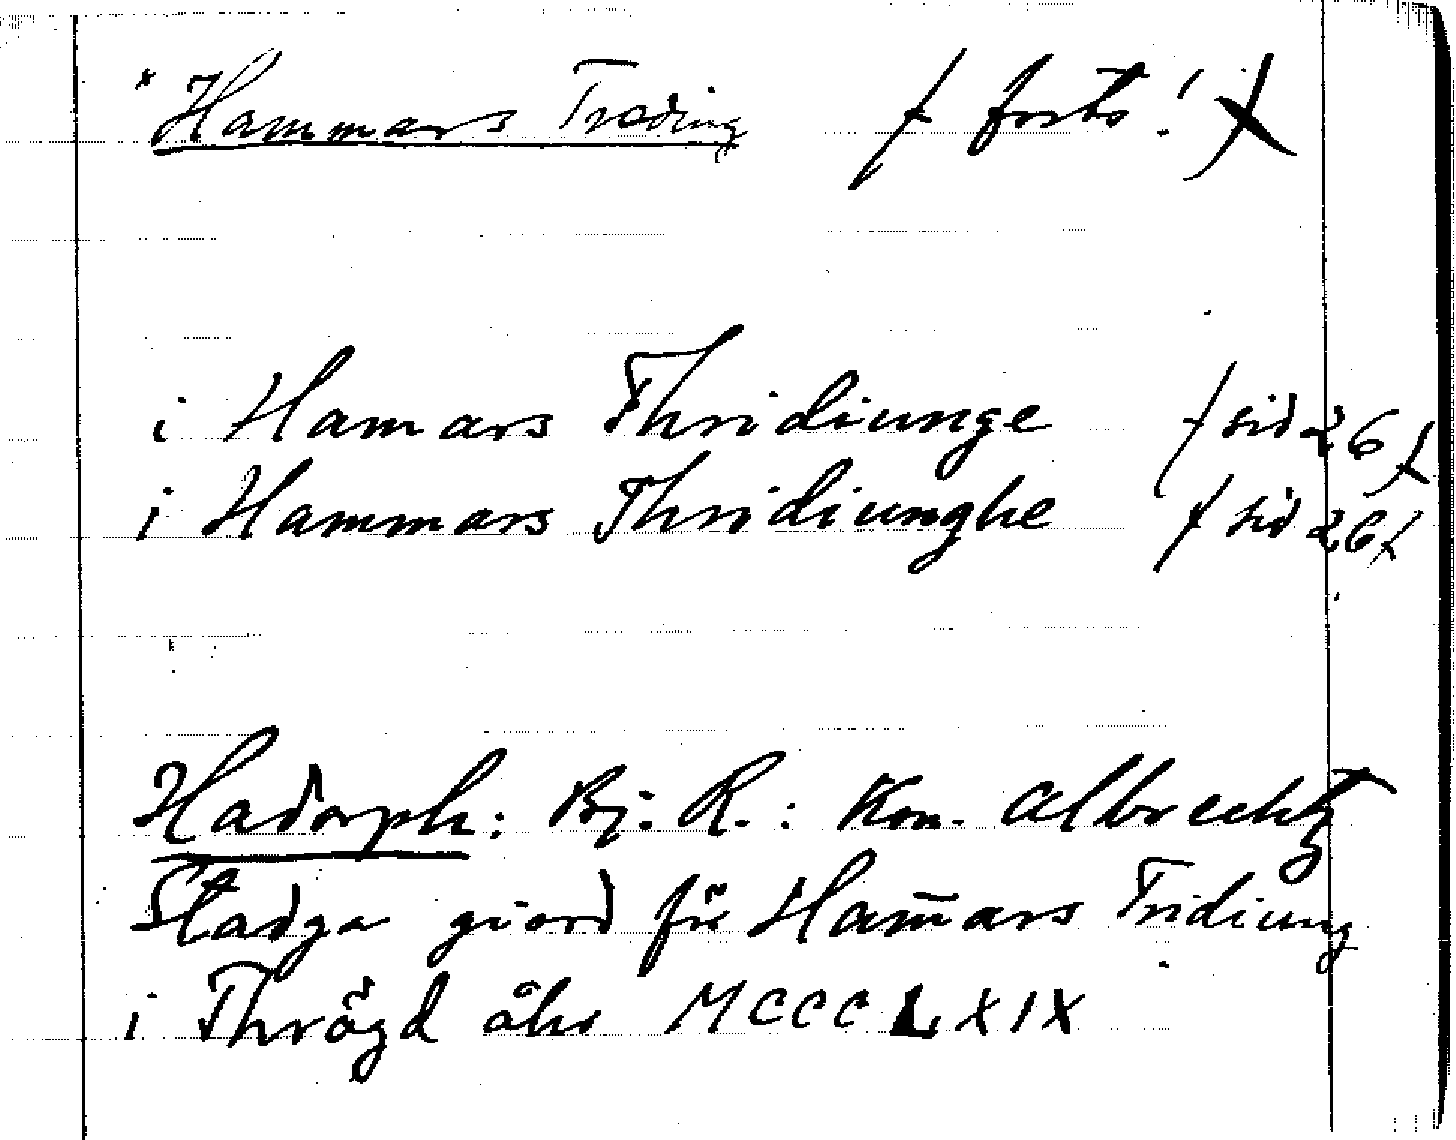 * Hammars Treding / forts! /
i Hamars Thridiunge / sid 26 /
i Hammars Thridiunghe / sid 26 /
Hadorph: Bj. R.: Kon. Albrechtz
Stadga giord för Ham̄ars Tridiung
i Thrögd åhr MCCCLXIX